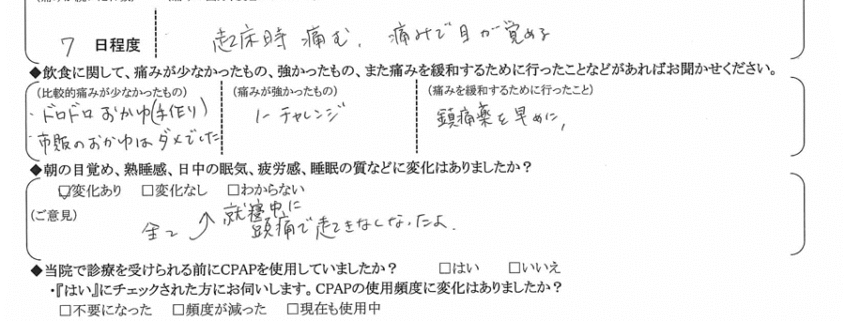 7 日程度 起床時 痛む、痛みで目が覚める
◆飲食に関して、痛みが少なかったもの、強かったもの、また痛みを緩和するために行ったことなどがあればお聞かせください。
(比較的痛みが少なかったもの) (痛みが強かったもの) (痛みを緩和するために行ったこと)
・ドロドロおかゆ(手作り) ノーチャレンジ 鎮痛薬を早めに、
・市販のおかゆはダメでした
◆朝の目覚め、熟睡感、日中の眠気、疲労感、睡眠の質などに変化はありましたか?
☑変化あり □変化なし □わからない
(ご意見) 全て ↗ 就寝中に
頭痛で起きなくなったよ.
◆当院で診療を受けられる前にCPAPを使用していましたか? □はい □いいえ
・『はい』にチェックされた方にお伺いします。CPAPの使用頻度に変化はありましたか?
□不要になった □頻度が減った □現在も使用中